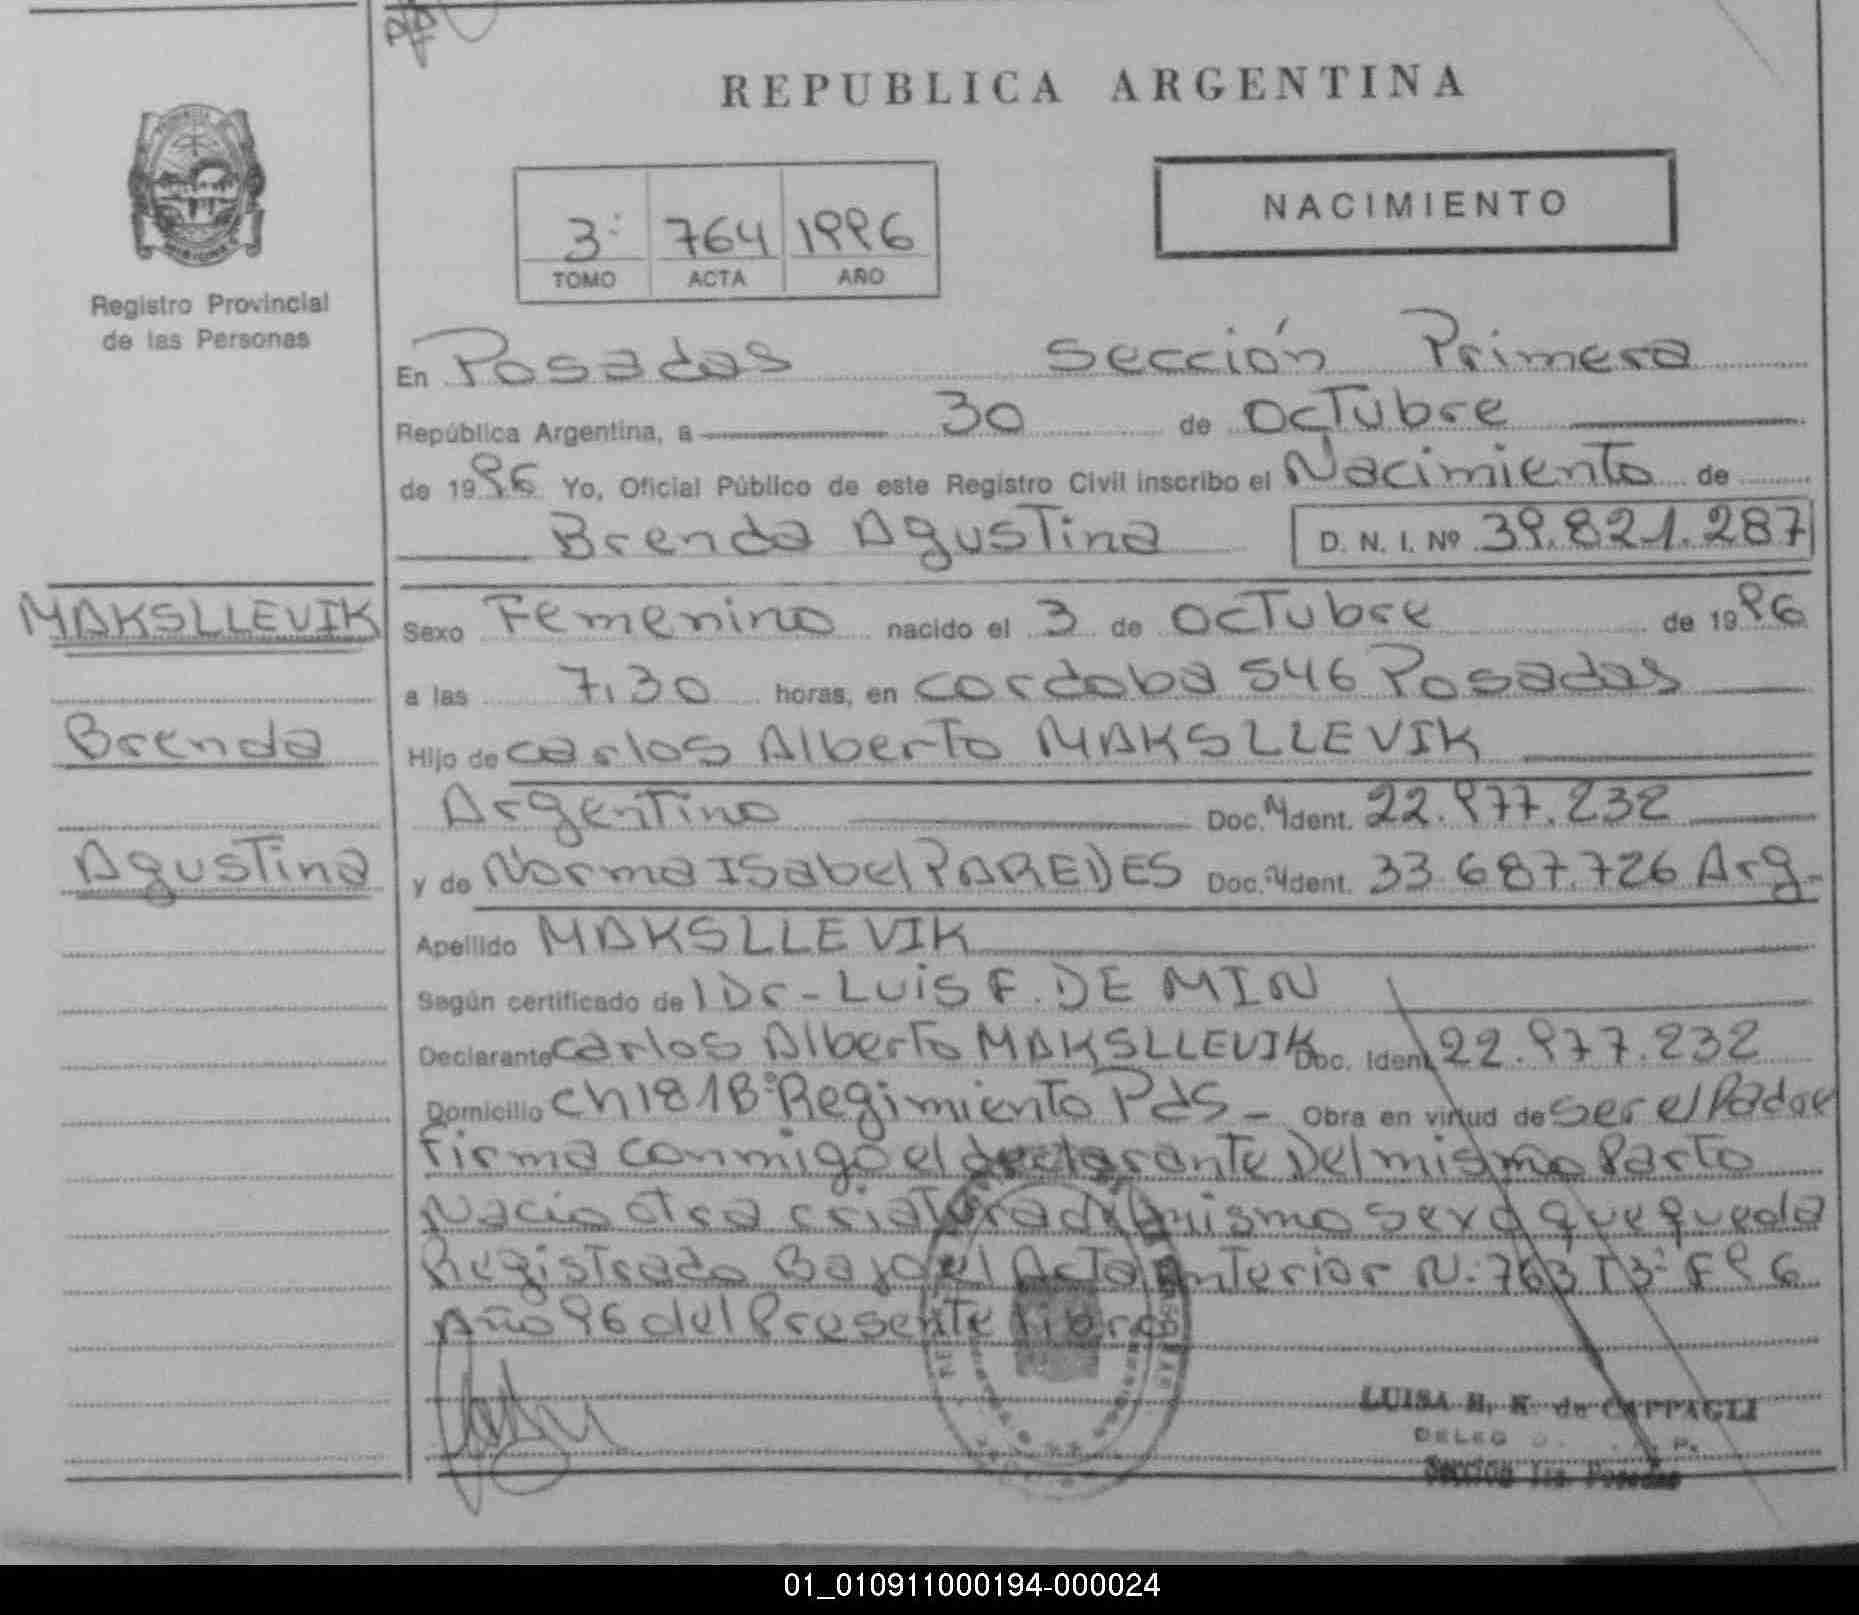 REPUBLICA ARGENTINA
NACIMIENTO
3: 764 1996
TOMO ACTA AÑO
Registro Provincial
de las Personas
En Posadas Sección Primera
República Argentina, a 30 de Octubre
de 1996 Yo, Oficial Público de este Registro Civil inscribo el Nacimiento de
Brenda Agustina D. N. I. Nº 39.821.287
MAKSLLEVIK
Brenda
Agustina
Sexo Femenino nacido el 3 de Octubre de 1996
a las 7,30 horas, en cordoba 546 Posadas
Hijo de carlos Alberto MAKSLLEVIK
Argentino Doc. N Ident. 22.977.232
y de Norma Isabel PAREDES Doc. N Ident. 33.687.726 Arg.
Apellido MAKSLLEVIK
Según certificado de Dr- Luis F. DE MIN
Declarante carlos Alberto MAKSLLEVIK Doc. Ident. 22.977.232
Domicilio ch 181 Bº Regimiento Pds - Obra en virtud de ser el Padre
Firma conmigo el declarante Del mismo Parto
Nacio otra criatura del mismo sexo que queda
Registrado Bajo el Acta anterior N: 763 T3: F96
Año 96 del Presente libro
LUISA H. K. de CAPPAGLI
DELEG
Sección 1ra. Posadas
01_010911000194-000024